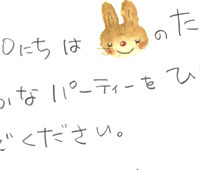 にちは の た
かな パーティーを ひ
ください。